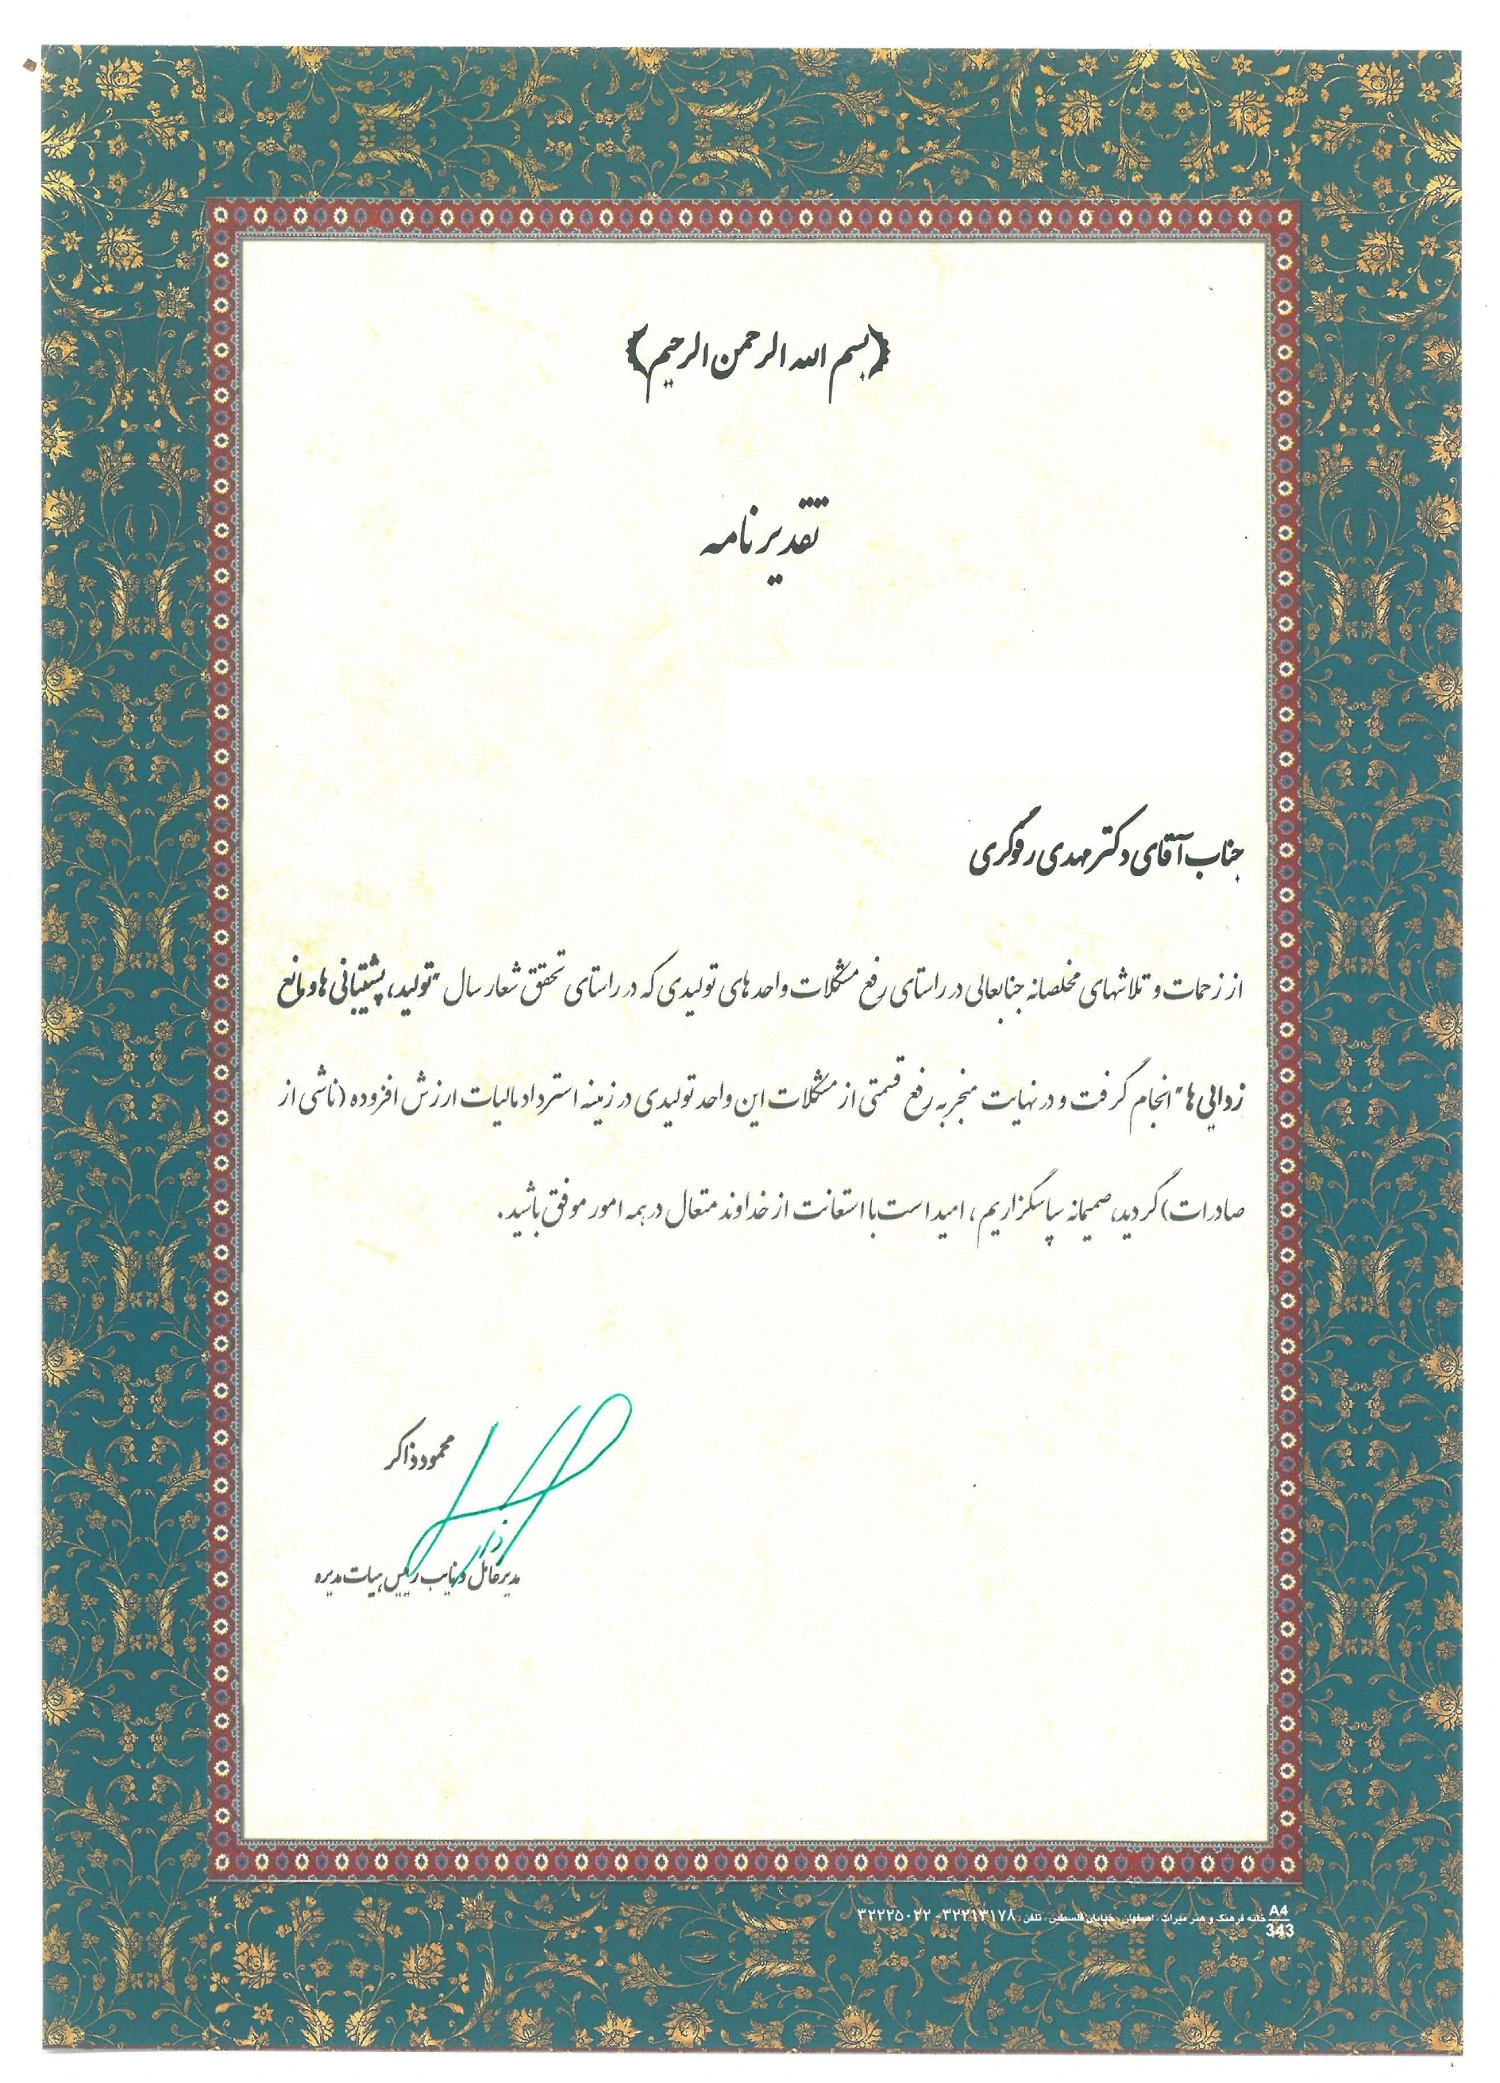 بسم الله الرحمن الرحیم
تقدیرنامه
جناب آقای دکتر مهدی رفوگری
از زحمات و تلاشهای مخلصانه جنابعالی در راستای رفع مشکلات واحدهای تولیدی که در راستای تحقق شعار سال "تولید، پشتیبانی ها و مانع
زدایی ها" انجام گرفت و در نهایت منجر به رفع قسمتی از مشکلات این واحد تولیدی در زمینه استرداد مالیات ارزش افزوده (ناشی از
صادرات) گردید، صمیمانه سپاسگزاریم، امید است با استعانت از خداوند متعال در همه امور موفق باشید.
محمود ذاکر
مدیرعامل و نایب رییس هیات مدیره
A4
343
خانه فرهنگ و هنر میراث، اصفهان، خیابان فلسطین، تلفن: ۳۲۲۱۳۱۷۸-۳۲۲۲۵۰۲۲